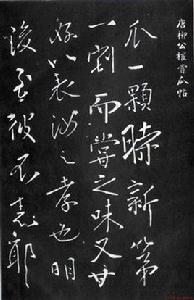 唐柳公權嘗瓜帖
瓜一顆時新第
一割而嘗之味又甘
好以表汝之孝也明
彼不耶